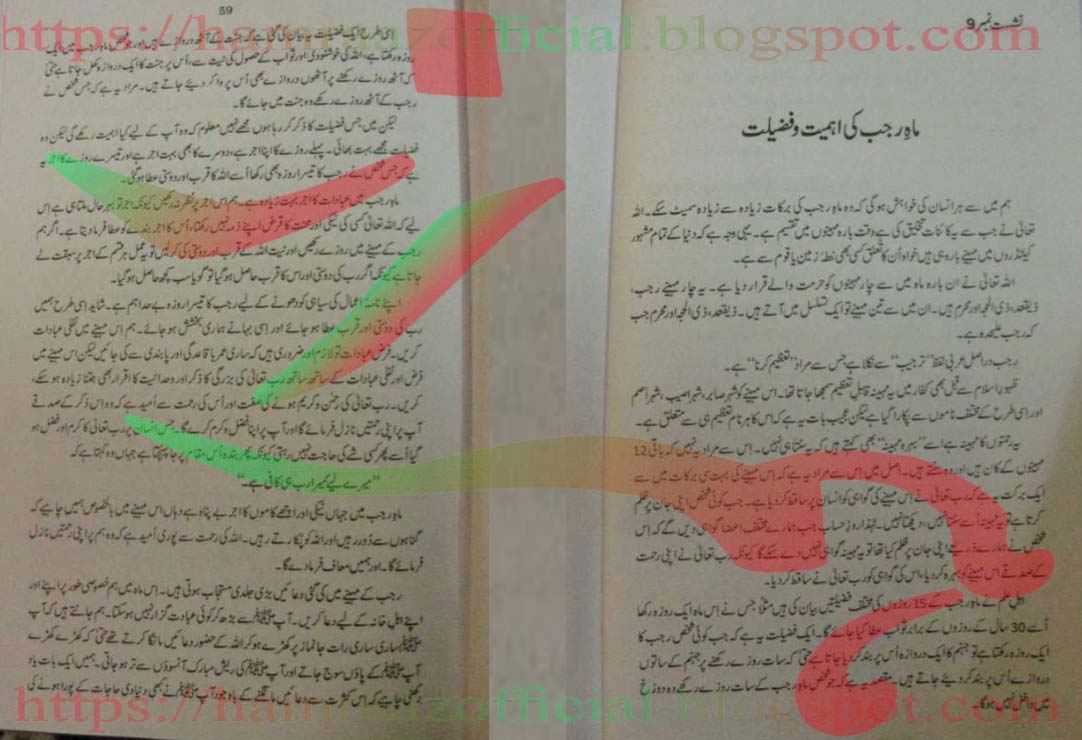 نشست نمبر 9
ماہِ رجب کی اہمیت و فضیلت
ہم میں سے ہر انسان کی خواہش ہو گی کہ وہ ماہِ رجب کی برکات زیادہ سے زیادہ سمیٹ سکے۔ اللہ
تعالیٰ نے جب سے یہ کائنات تخلیق کی ہے وقت بارہ مہینوں میں تقسیم ہے۔ یہی وجہ ہے کہ دنیا کے تمام مشہور
کیلنڈروں میں مہینے بارہ ہی ہیں خواہ اُن کا تعلق کسی بھی خطۂ زمین یا قوم سے ہے۔
اللہ تعالیٰ نے ان بارہ ماہ میں سے چار مہینوں کو حرمت والے قرار دیا ہے۔ یہ چار مہینے رجب،
ذیقعد، ذی الحجہ اور محرم ہیں۔ ان میں سے تین مہینے تو ایک تسلسل میں آتے ہیں۔ ذیقعد، ذی الحجہ اور محرم جب
کہ رجب علیحدہ ہے۔
رجب دراصل عربی لفظ ”ترجیب“ سے نکلا ہے جس سے مراد ”تعظیم کرنا“ ہے۔
ظہورِ اسلام سے قبل بھی کفار میں یہ مہینہ قابلِ تعظیم سمجھا جاتا تھا۔ اس مہینے کو شہر صابر، شہر اصیب، شہر اُصم
اور اِسی طرح کے مختلف ناموں سے پکارا گیا ہے لیکن عجیب بات یہ ہے کہ اس کا ہر نام تعظیم ہی سے متعلق ہے۔
یہ رحمتوں کا مہینہ ہے اسے ”بہرہ مہینہ“ بھی کہتے ہیں کہ یہ سنتا ہی نہیں۔ اِس سے مراد یہ نہیں کہ باقی 12
مہینوں کے کان ہیں اور وہ سنتے ہیں۔ اصل میں اِس سے مراد یہ ہے کہ اِس مہینے کی بہت سی برکات میں سے
ایک برکت یہ ہے کہ رب تعالیٰ نے اِس مہینے کی گواہی کو انسان پر ساقط کر دیا ہے۔ جب کوئی شخص اپنی جان پر ظلم
کرتا ہے تو یہ مہینہ اُسے سنتا نہیں، دیکھتا نہیں۔ لہٰذا روزِ حساب جب ہمارے مختلف اعضا گواہی دیں گے کہ اس
شخص نے ہمارے ذریعے اپنی جان پر ظلم کیا تھا تو یہ مہینہ گواہی نہیں دے سکے گا کیونکہ رب تعالیٰ نے اپنی رحمت
کے صدقے اس مہینے کو بہرہ کر دیا، اس کی گواہی کو رب تعالیٰ نے ساقط کر دیا۔
اہلِ علم نے ماہِ رجب کے 15 روزوں کی مختلف فضیلتیں بیان کی ہیں مثلاً جس نے اِس ماہ ایک روزہ رکھا
اُسے 30 سال کے روزوں کے برابر ثواب عطا کیا جائے گا۔ ایک فضیلت یہ ہے کہ جب کوئی شخص رجب کا
ایک روزہ رکھتا ہے تو جہنم کا ایک دروازہ اُس پر بند کر دیا جاتا ہے حتیٰ کہ سات روزے رکھنے پر جہنم کے ساتوں
دروازے اُس پر بند کر دیئے جاتے ہیں۔ مقصد یہ ہے کہ جو شخص ماہِ رجب کے سات روزے رکھے وہ دوزخ
میں داخل نہیں ہو گا۔
59
اِسی طرح ایک فضیلت یہ بیان کی گئی ہے کہ جنت کے آٹھ دروازے ہیں اور جو شخص ماہِ رجب میں ایک
روزہ رکھتا ہے، اللہ کی خوشنودی اور ثواب کے حصول کی نیت سے، اُس پر جنت کا ایک دروازہ کھل جاتا ہے حتیٰ
کہ آٹھ روزے رکھنے پر آٹھوں دروازے بھی اُس پر وا کر دیئے جاتے ہیں۔ مراد یہ ہے کہ جس شخص نے
رجب کے آٹھ روزے رکھے وہ جنت میں جائے گا۔
لیکن میں جس فضیلت کا ذکر کر رہا ہوں مجھے نہیں معلوم کہ وہ آپ کے لیے کیا اہمیت رکھے گی لیکن وہ
فضیلت مجھے بہت بھائی۔ پہلے روزے کا اپنا اجر ہے، دوسرے کا بھی بہت اجر ہے اور تیسرے روزے کا اجر یہ
ہے کہ جس شخص نے رجب کا تیسرا روزہ بھی رکھا اُسے اللہ کا قرب اور دوستی عطا ہو گئی۔
ماہِ رجب میں عبادات کا اجر بہت زیادہ ہے۔ ہم اس اجر پر نظر نہ رکھیں کیونکہ اجر تو بہرحال ملتا ہی ہے اِس
لیے کہ اللہ تعالیٰ کسی کی نیکی اور محنت کا قرض اپنے ذمہ نہیں رکھتا، اُس کا اجر بندے کو عطا فرما دیتا ہے۔ اگر ہم
رجب کے مہینے میں روزے رکھیں اور نیت اللہ کے قرب اور دوستی کی کر لیں تو یہ عمل ہر قسم کے اجر پر سبقت لے
جاتا ہے کیونکہ اگر رب کی دوستی اور اس کا قرب حاصل ہو گیا تو گویا سب کچھ حاصل ہو گیا۔
اپنے نامۂ اعمال کی سیاہی کو دھونے کے لیے رجب کا تیسرا روزہ بے حد اہم ہے۔ شاید اِسی طرح ہمیں
رب کی دوستی اور قرب عطا ہو جائے اور اِسی بہانے ہماری بخشش ہو جائے۔ ہم اِس مہینے میں نفلی عبادات
کریں۔ فرض عبادات تو لازم اور ضروری ہیں کہ ساری عمر باقاعدگی اور پابندی سے کی جائیں لیکن اس مہینے میں
فرض اور نفلی عبادات کے ساتھ ساتھ رب تعالیٰ کی بزرگی کا ذکر اور وحدانیت کا اقرار بھی جتنا زیادہ ہو سکے،
کریں۔ رب تعالیٰ کی رحمٰن و کریم ہونے کی صفت اور اُس کی رحمت سے اُمید ہے کہ وہ اِس ذکر کے صدقے
آپ پر اپنی رحمتیں نازل فرمائے گا اور آپ پر اپنا فضل و کرم کرے گا۔ جس انسان پر رب تعالیٰ کا کرم اور فضل ہو
گیا اُسے پھر کسی شے کی حاجت نہیں رہتی کیونکہ پھر بندہ اُس مقام پر جا پہنچتا ہے جہاں وہ کہتا ہے کہ
”میرے لیے میرا رب ہی کافی ہے۔“
ماہِ رجب میں جہاں نیکی اور اچھے کاموں کا اجر بے پناہ ہے وہاں اس مہینے میں بالخصوص ہمیں چاہیے کہ
گناہوں سے دُور رہیں اور اللہ کو پکارتے رہیں۔ اللہ کی رحمت سے پوری اُمید ہے کہ وہ ہم پر اپنی رحمتیں نازل
فرمائے گا۔ اور ہمیں معاف فرما دے گا۔
رجب کے مہینے میں کی گئی دعائیں بڑی جلدی مستجاب ہوتی ہیں۔ اِس ماہ میں ہم خصوصی طور پر اپنے اور
اپنے اہلِ خانہ کے لیے دعا کریں۔ آپ ﷺ سے بڑھ کر کوئی عبادت گزار نہیں ہو سکتا۔ ہم جانتے ہیں کہ آپ
ﷺ ساری ساری رات جائے نماز پر کھڑے ہو کر اللہ کے حضور دعائیں مانگا کرتے تھے حتیٰ کہ کھڑے کھڑے
آپ ﷺ کے پاؤں سوج جاتے اور آپ ﷺ کی ریش مبارک آنسوؤں سے تر ہو جاتی۔ ہمیں ایک بات یاد
رکھنی چاہیے کہ اس کثرت سے دعائیں مانگنے کے باوجود آپ ﷺ نے کبھی دنیاوی حاجات کے پورا ہونے کی